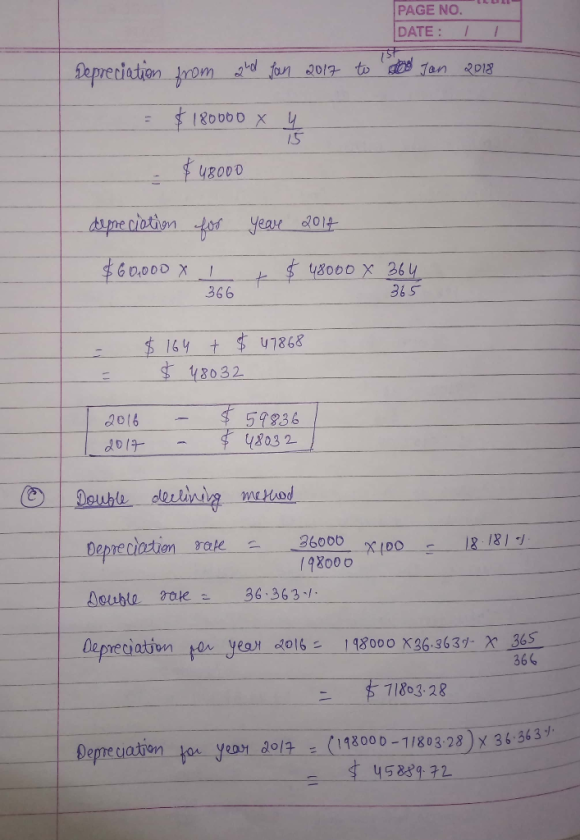 PAGE NO.
DATE : / /
Depreciation from 2nd Jan 2017 to 1st Jan 2018
= $ 180000 × 4/15
= $ 48000
depreciation for year 2017
$ 60,000 × 1/366 + $ 48000 × 364/365
= $ 164 + $ 47868
= $ 48032
2016 - $ 59836
2017 - $ 48032
(c) Double declining method
Depreciation rate = 36000/198000 ×100 = 18.181%
Double rate = 36.363%.
Depreciation for year 2016 = 198000 × 36.363% × 365/366
= $ 71803.28
Depreciation for year 2017 = (198000-71803.28) × 36.363%
= $ 45889.72